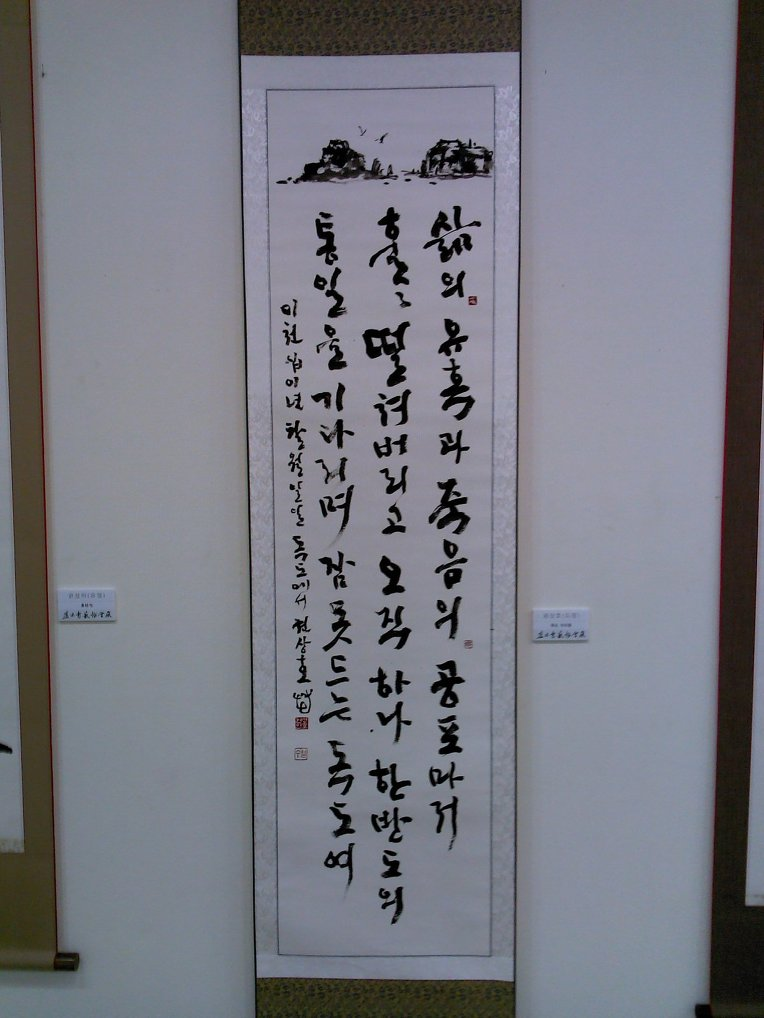 삶의 유혹과 죽음의 공포마저
훌훌 떨쳐버리고 오직 하나 한반도의
통일을 기다리며 잠 못 드는 독도여
이천십이년 팔월 말일 독도에서 현상호